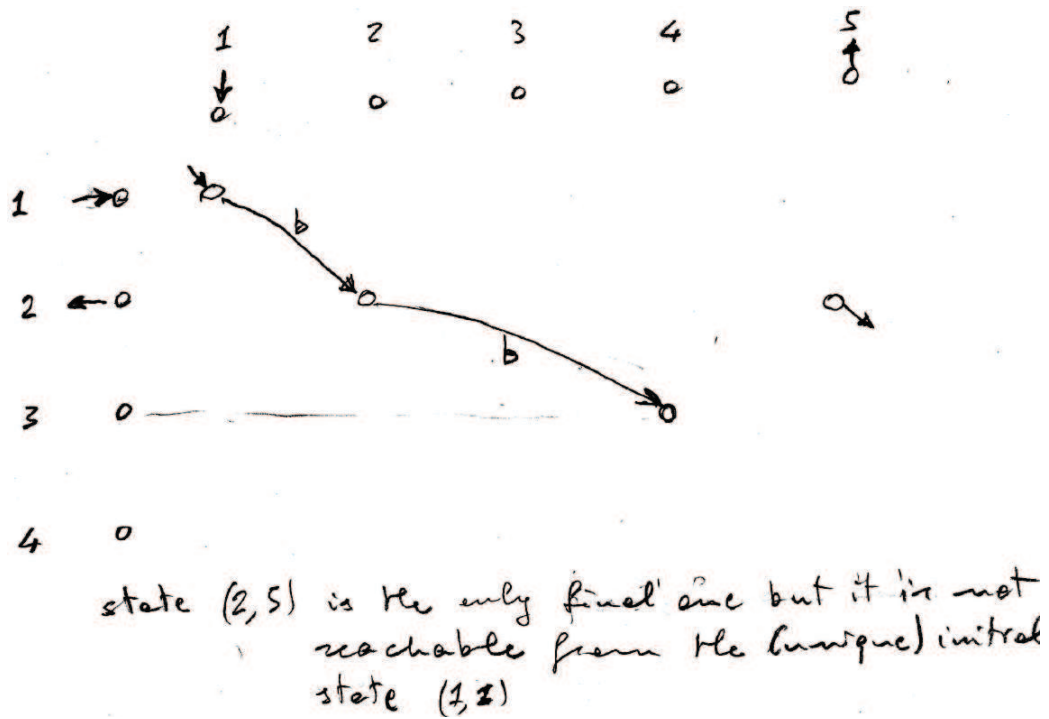 1 2 3 4 5
1
b
2
b
3
4
state (2,5) is the only final one but it is not
reachable from the (unique) initial
state (1,1)